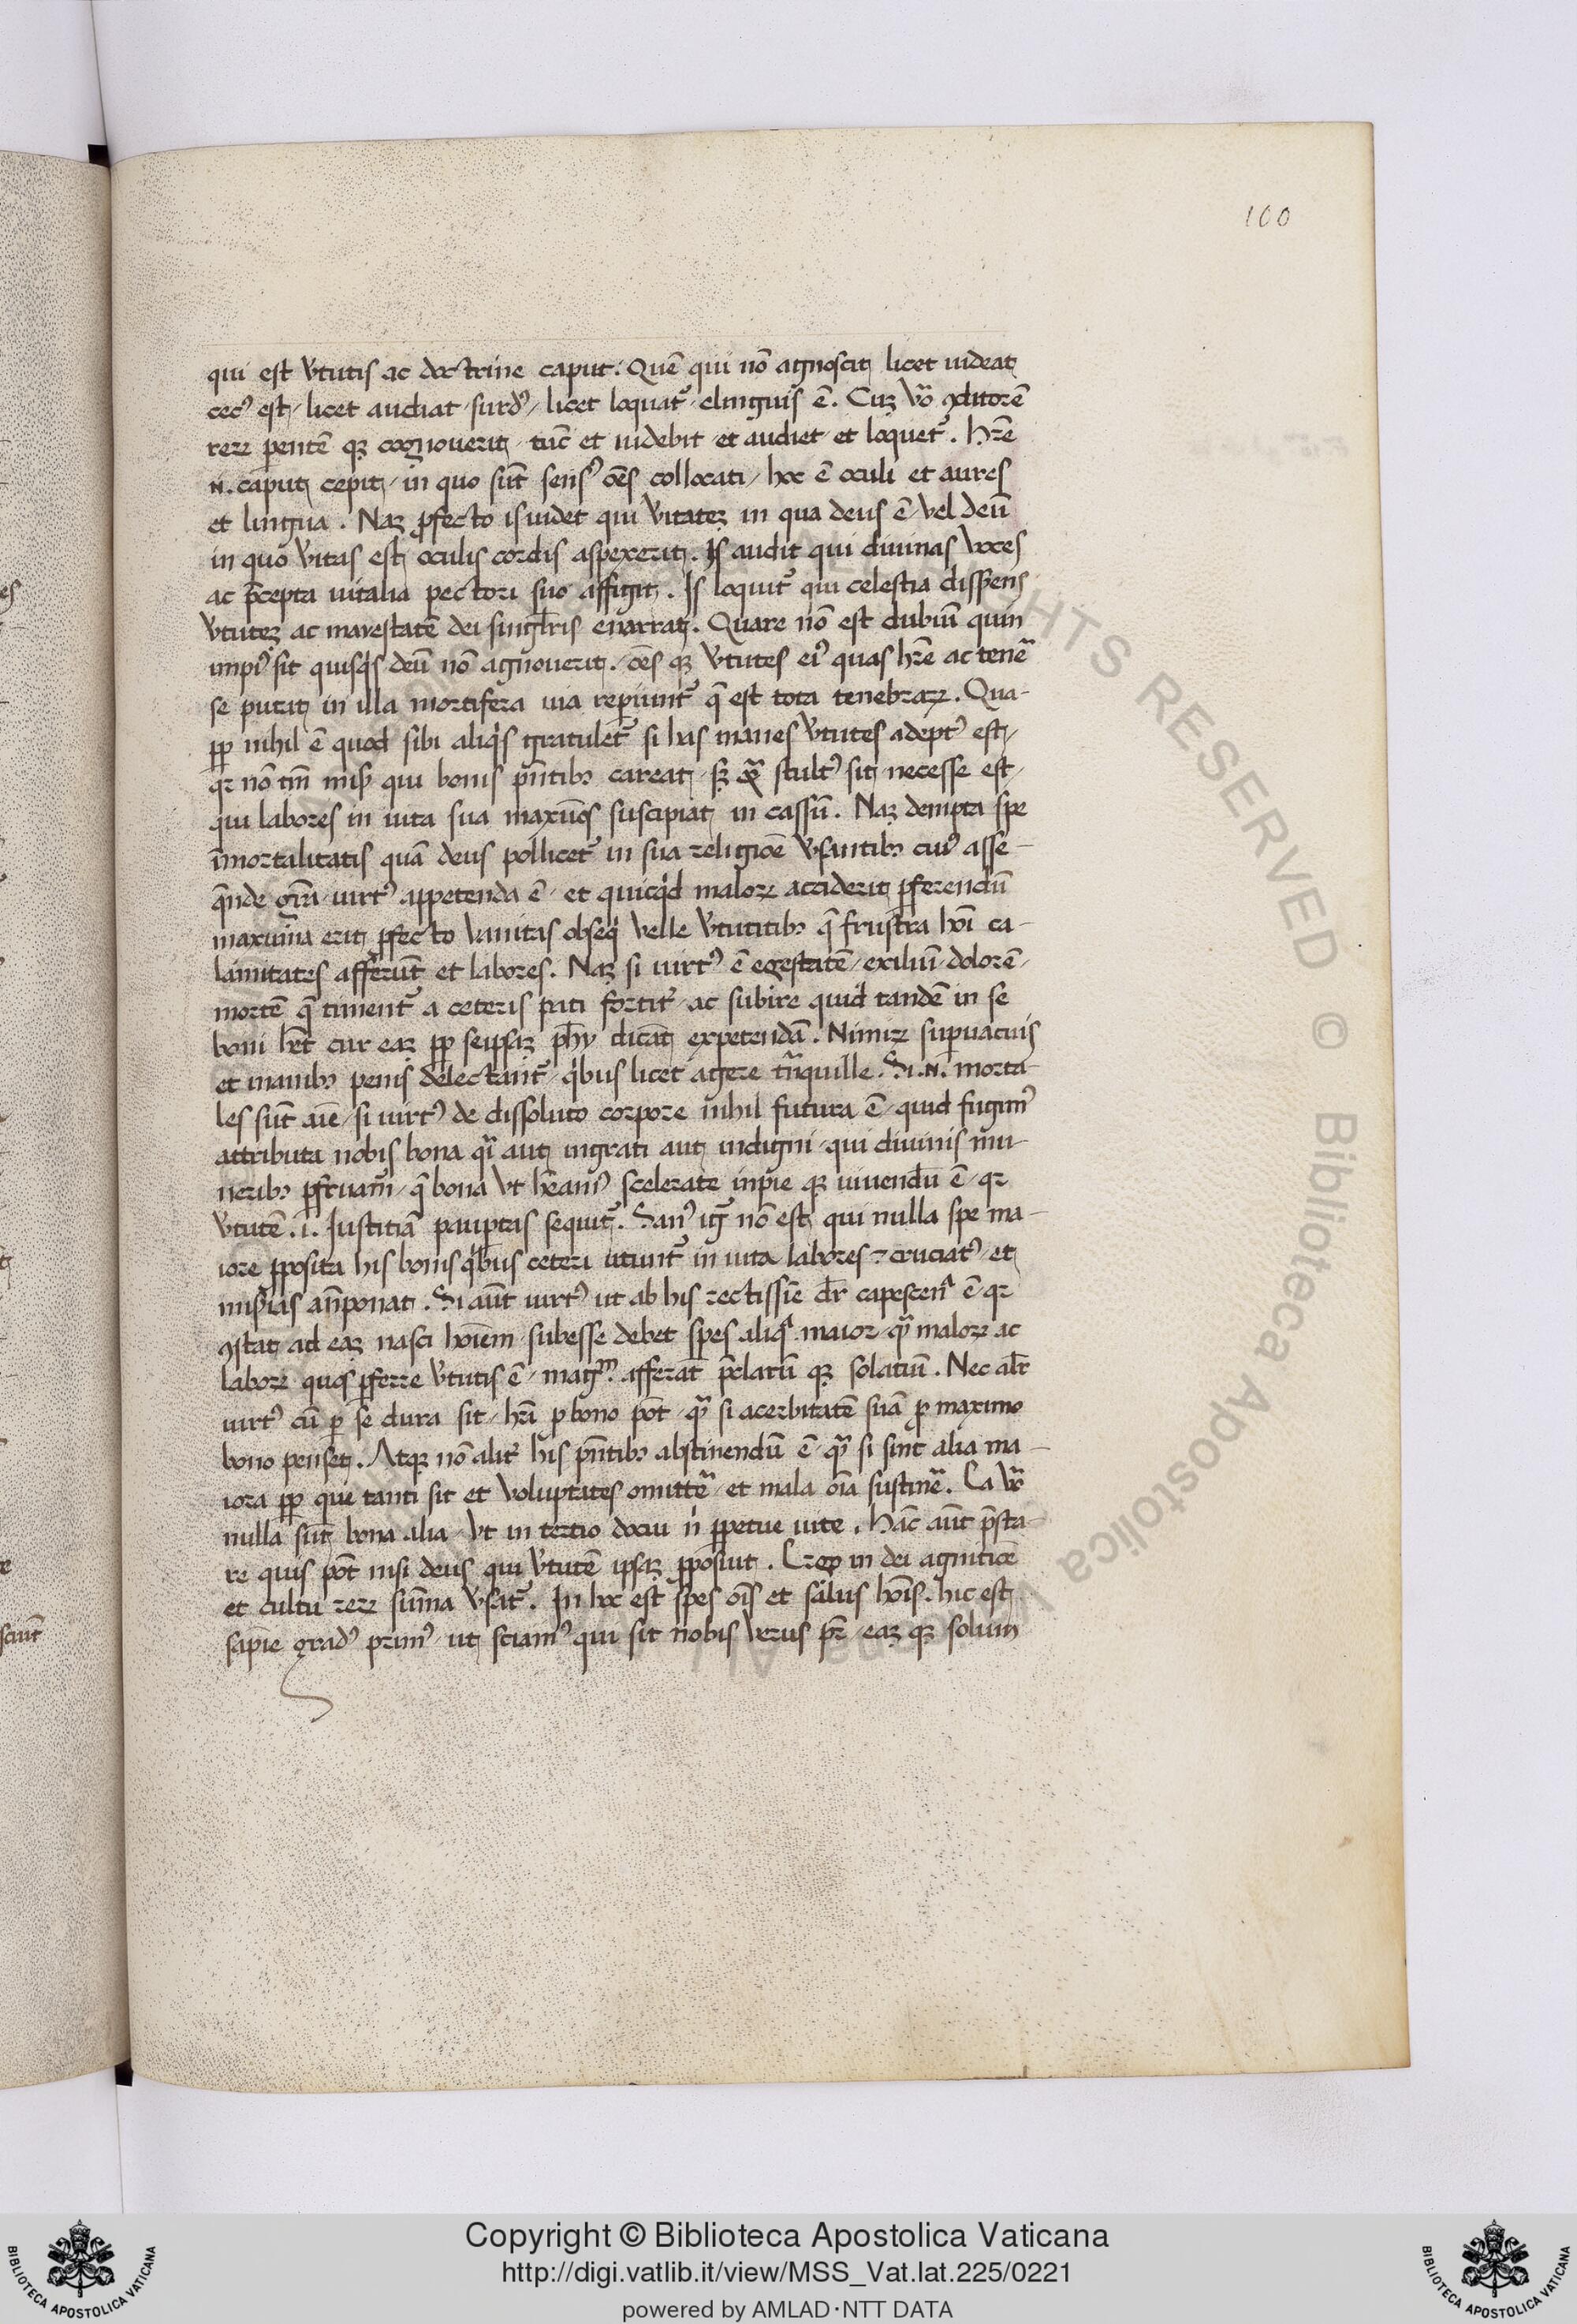 100
qui est v̓tutis ac doctrine caput. Quē qui nō agnoscit licet uideat
cecꝰ est / licet audiat surdꝰ / licet loquat᷑ elinguis ē. Cuꝫ vo᷑ ꝯditorē
reꝝ parentē qꝫ cognouerit tūc et uidebit et audiet et loquet᷑. Hr̄e
.N. caput cepit / in quo sūt sensꝰ oēs collocati / hoc ē oculi et aures
et lingua. Naꝫ ꝓfecto is uidet qui v̓itateꝫ in qua deus ē vel deū
in quo v̓itas est oculis cordis aspexerit. Is audit qui diuinas voces
ac p̄cepta uitalia pectori suo affigit. Is loquit᷑ qui celestia disserens
v̓tuteꝫ ac maiestatē dei singl̄ris enarrat. Quare nō est dubiū quin
impiꝰ sit quisq̓s deū nō agnouerit. oēs qꝫ v̓tutes eiꝰ quas hr̄e ac tenē
se putat in illa mortifera uia reperiunt᷑ q̄ est tota tenebraꝝ. Qua-
ꝓp nihil ē quod sibi aliq̓s gratulet᷑ si has inanes v̓tutes adeptꝰ est /
qꝛ nō tm̄ miser qui bonis p̄ntibꝫ careat sꝫ stultꝰ sit necesse est /
qui labores in uita sua maxīos suscipiat in cassū. Naꝫ dempta spe
īmortalitatis quā deus pollicet᷑ in sua religiōe v̓santibꝫ cuiꝰ asse-
q̄nde gr̄a uirtꝰ appetenda ē et quicq̓d maloꝝ acciderit ꝑferendū
maxima erit ꝓfecto vanitas obseq̓ velle v̓tutibꝫ q̄ frustra hoī ca-
lamitates afferunt et labores. Naꝫ si uirtꝰ ē egestatē / exiliū / dolorē /
mortē q̄ timent᷑ a ceteris pati fortit᷑ ac subire quid tandē in se
boni hēt cur eaꝫ ꝓp seipsaꝫ phy dicāt expetendā. Nimiꝝ superuacuis
et inanibꝫ penis delectant᷑ q̓bus licet agere tranquille. Si .N. morta-
les sūt aīe / si uirtꝰ de dissoluto corpore nihil futura ē / quid fugimꝰ
attributa nobis bona qi̓ aut ingrati aut indigni qui diuinis mu-
neribꝫ ꝑfruam᷑ / q̄ bona vt hēamꝰ scelerate impie qꝫ uiuendū ē qꝛ
v̓tutē .i. Iustitiā paupertas sequit᷑. Sanꝰ ig᷑ nō est qui nulla spe ma-
iore ꝓposita his bonis q̓bus ceteri utunt᷑ in uita labores ⁊ cruciatꝰ et
miserias anteponat. Si aūt uirtꝰ ut ab his rectissīe dr̄ capescenda ē qꝛ
ꝯstat ad eaꝫ nasci hoīem subesse debet spes aliqa maior q̄ maloꝝ ac
laboꝝ quos ꝑferre v̓tutis ē / magm̄ afferat p̄clarū qꝫ solatiū. Nec alr̄
uirtꝰ cū per se dura sit / hr̄i pro bono pōt / q̄ si acerbitatē suā maximo
bono penset. Atqꝫ nō alit᷑ his p̄ntibꝫ abstinendū ē q̄ si sint alia ma-
iora ꝓp que tanti sit et voluptates omittē et mala oīa sustinē. Ea vo᷑
nulla sūt bona alia vt in tertio docui ni ꝑpetue uite. Hāc aūt p̄sta-
re quis pōt nisi deus qui v̓tutē ipsaꝫ ꝓposuit. Ergo in dei agnitiōe
et cultu reꝝ sūma v̓sat᷑. In hoc est spes oīs et salus hoīs. hic est
sapīe gradꝰ primꝰ ut sciamꝰ qui sit nobis verus pr̄ / eaꝫ qꝫ solum
Copyright © Biblioteca Apostolica Vaticana
http://digi.vatlib.it/view/MSS_Vat.lat.225/0221
powered by AMLAD·NTT DATA